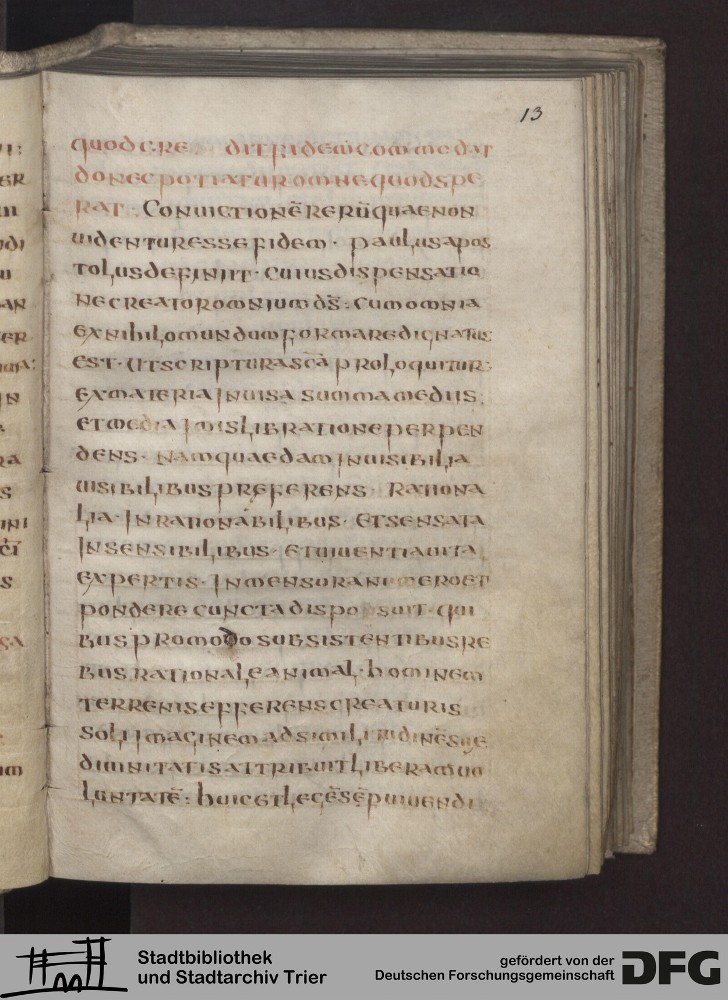 13
QUODCRE DITFIDEM COMMODAT
DONEC POTIATUR OMNE QUOD SPE
RAT · CONUICTIONĒ RERŪ QUAE NON
UIDENTUR ESSE FIDEM · PAULUS APOS
TOLUS DEFINIIT · CUIUS DISPENSATIO
NE CREATOR OMNIUM DS̄ : CUM OMNIA
EX NIHILO MUNDUM FORMARE DIGNATUS
EST · UT SCRIPTURA SCĀ PROLOQUITUR :
EX MATERIA INUISA SUMMA MEDIIS
ET MEDIA IMIS LIBRATIONE PERPEN
DENS · NAM QUAEDAM INUISIBILIA
UISIBILIBUS PREFERENS · RATIONA
LIA · INRATIONABILIBUS · ET SENSATA
INSENSIBILIBUS · ET UIUENTIA UITA
EXPERTIS · IN MENSURA NUMERO ET
PONDERE CUNCTA DISPOSUIT · QUI
BUS PRO MODO SUBSISTENTIBUS RE
BUS RATIONALE ANIMAL · HOMINEM
TERRENIS EFFERENS CREATURIS
SOLI IMAGINEM AD SIMILITUDINĒ SUE
DIUINITATIS ATTRIBUIT LIBERAM UO
LUNTATĒ : HUIC ET LEGĒ SĒP UIUENDI
Stadtbibliothek
und Stadtarchiv Trier
gefördert von der
Deutschen Forschungsgemeinschaft
DFG